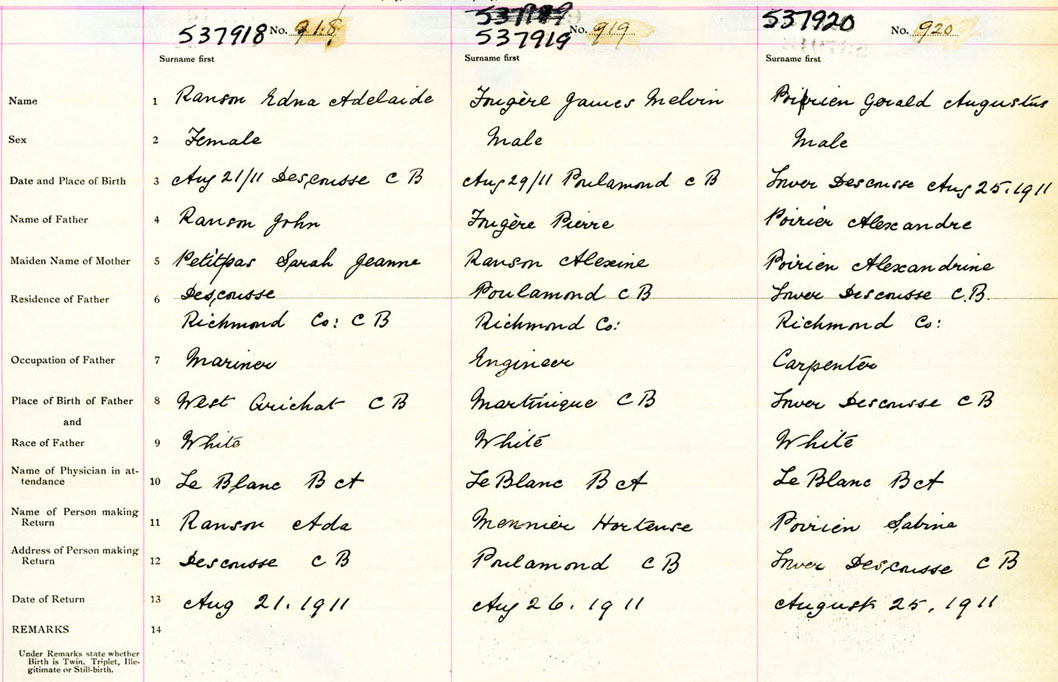 537918 No. 918
537919 No. 919
537920 No. 920
Surname first Surname first Surname first
Name 1 Ranson Edna Adelaide Fougère James Melvin Poirrien Gerald Augustus
Sex 2 Female Male Male
Date and Place of Birth 3 Aug 21/11 Descousse C B Aug 29/11 Poulamond C B Lower Descousse Aug 25, 1911
Name of Father 4 Ranson John Fougère Pierre Poirier Alexandre
Maiden Name of Mother 5 Petitpas Sarah Jeanne Ranson Alexine Poirien Alexandrine
Residence of Father 6 Descousse Poulamond C B Lower Descousse C.B.
Richmond Co: C B Richmond Co: Richmond Co:
Occupation of Father 7 Mariner Engineer Carpenter
Place of Birth of Father 8 West Arichat C B Martinique C B Lower Descousse C B
and
Race of Father 9 White White White
Name of Physician in at-
tendance 10 Le Blanc B A Le Blanc B A Le Blanc B A
Name of Person making
Return 11 Ranson Ada Monnier Hortense Poirien Sabine
Address of Person making
Return 12 Descousse C B Poulamond C B Lower Descousse C B
Date of Return 13 Aug 21. 1911 Aug 26. 1911 August 25, 1911
REMARKS 14
Under Remarks state whether
Birth is Twin, Triplet, Ille-
gitimate or Still-birth.